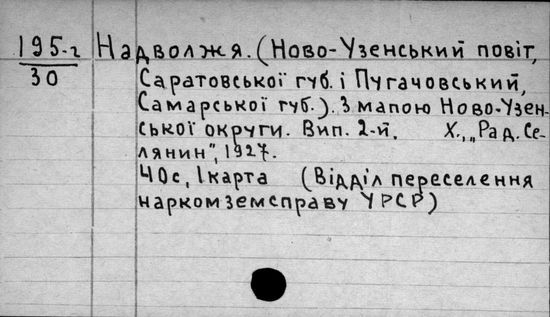 195-г Надволжя. (Ново-Узенський повіт,
30 Саратовської губ. і Пугачовський,
Самарської губ.). З мапою Ново-Узен-
ської округи. Вип. 2-й. Х., „Рад. Се-
лянин", 1927.
40с, 1 карта (Відділ переселення
наркомземсправу УРСР)